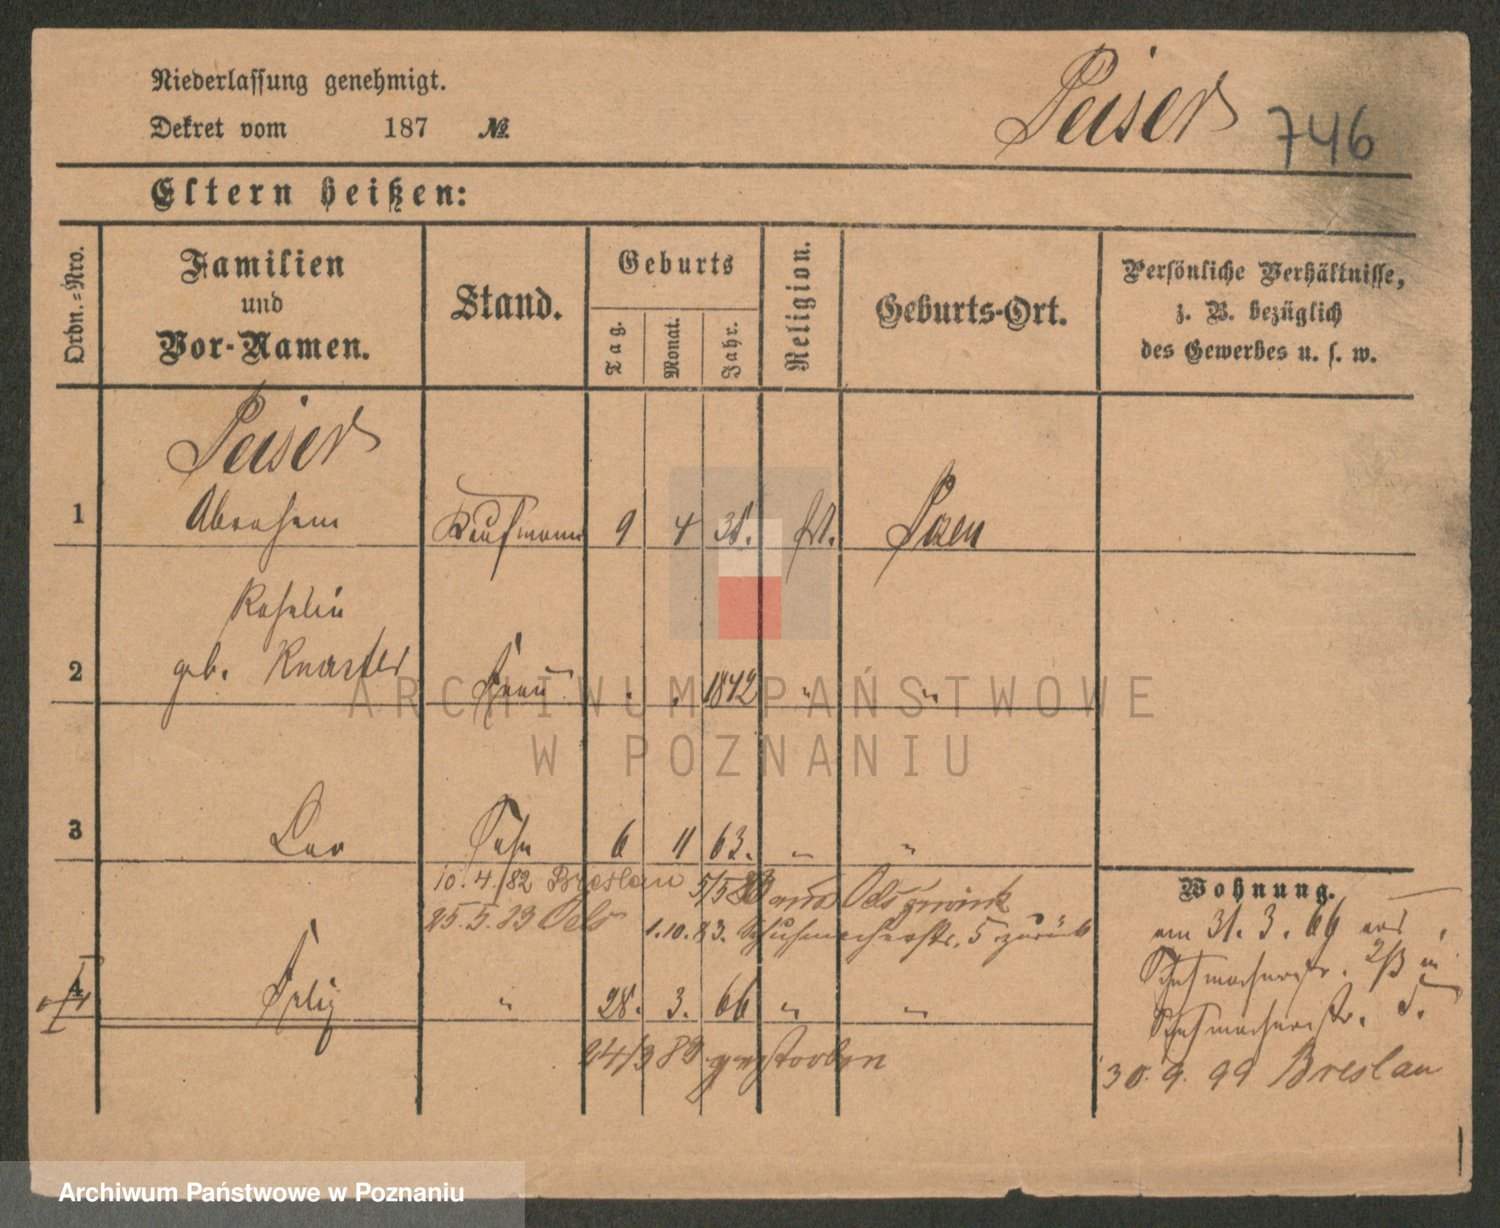 Niederlassung genehmigt.
Peiser
746
Dekret vom 187 №
Eltern heißen:
Ordn.-Nro.
Familien
und
Vor-Namen.
Stand.
Geburts
Tag.
Monat.
Jahr.
Religion.
Geburts-Ort.
Persönliche Verhältnisse,
z. B. bezüglich
des Gewerbes u. s. w.
Peiser
1 Abraham Kaufmann 9 4 38. Posen
Rosalie
2 geb. Knaster Frau 1842 " "
ARCHIWUM PAŃSTWOWE
W POZNANIU
3 Leo Sohn 6 11 63. " "
10.4./82 Breslau 5/5 83 aus Oels zurück
25.5.83 Oels 1.10.83. Schuhmacherstr. 5 zurück
4 Felix " 28. 3. 66 " "
24/3 89 gestorben
Wohnung.
am 31. 3. 66 aus
Schuhmacherstr. 2/3 in
Schuhmacherstr. 5.
30. 9. 99 Breslau
Archiwum Państwowe w Poznaniu